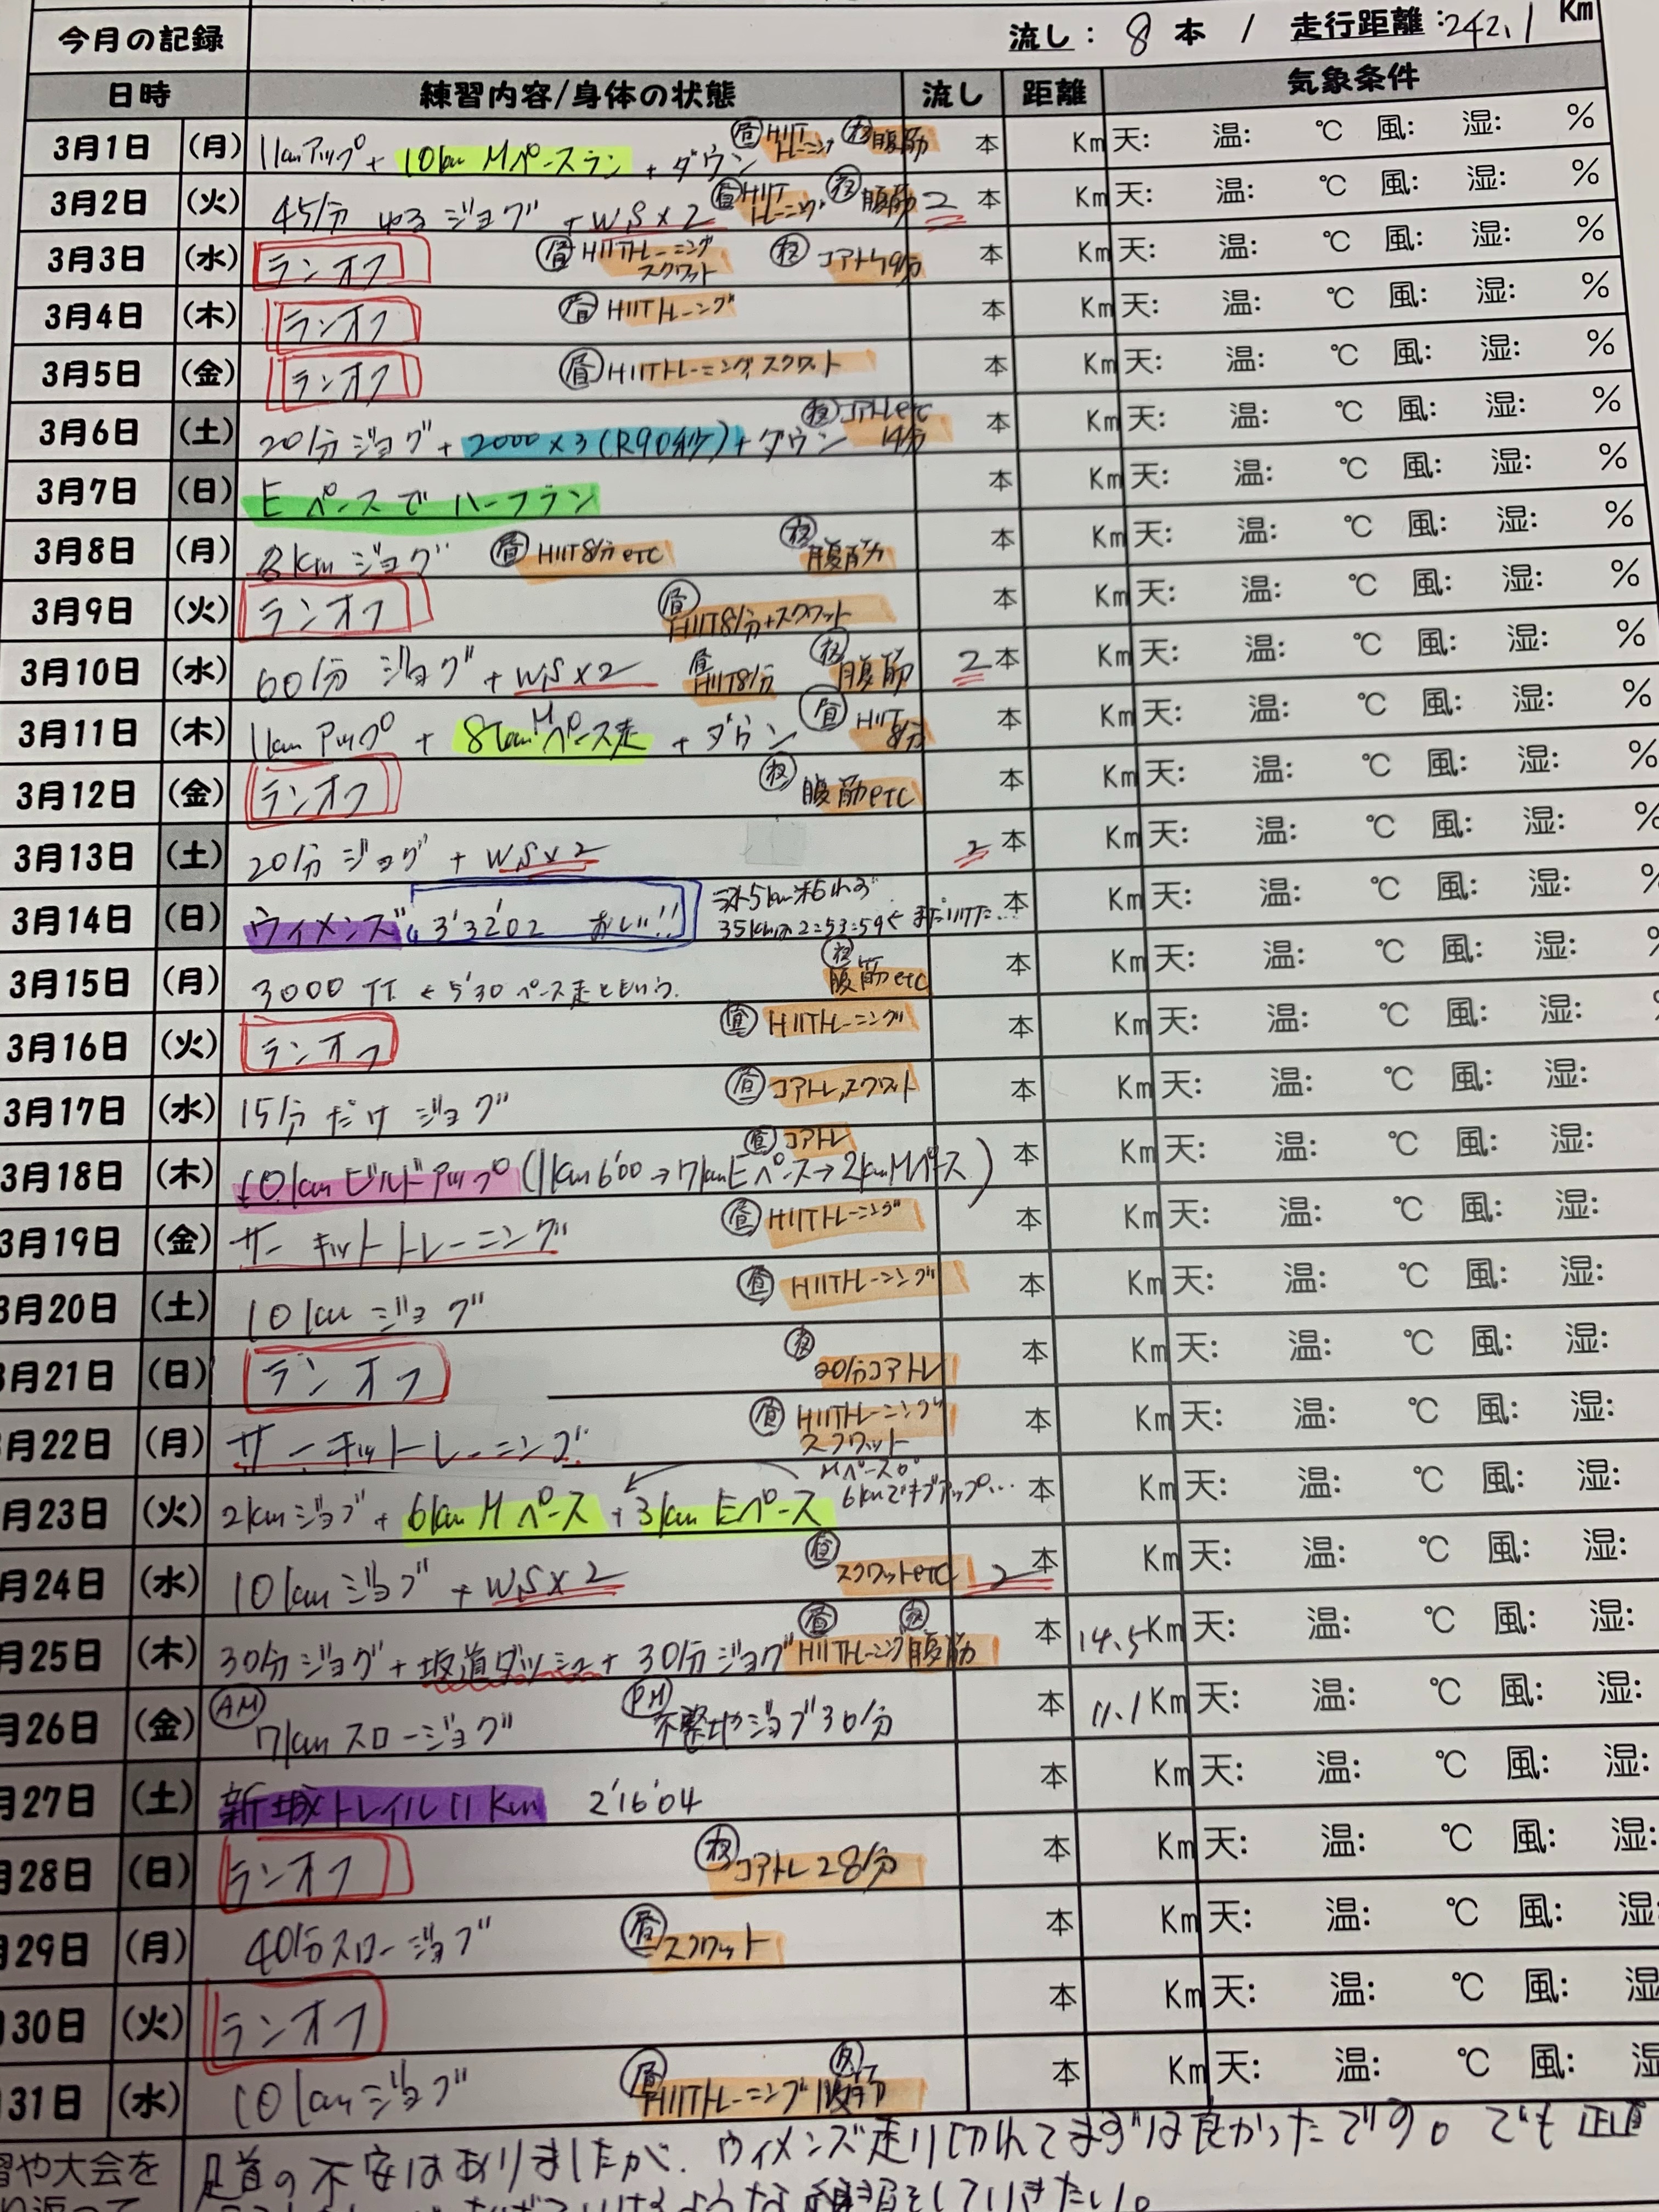 今月の記録 流し: 8 本 / 走行距離:242.1 Km
日時 練習内容/身体の状態 流し 距離 気象条件
3月1日 (月) 1kmアップ+10km Mペースラン+ダウン 昼HIITトレーニング 夜腹筋 本 Km 天: 温: ℃ 風: 湿: %
3月2日 (火) 45分 ゆるジョグ +WS×2 昼HIITトレーニング 夜腹筋 2 本 Km 天: 温: ℃ 風: 湿: %
3月3日 (水) ランオフ 昼HIITトレーニング スクワット 夜コアトレ9分 本 Km 天: 温: ℃ 風: 湿: %
3月4日 (木) ランオフ 昼HIITトレーニング 本 Km 天: 温: ℃ 風: 湿: %
3月5日 (金) ランオフ 昼HIITトレーニング,スクワット 本 Km 天: 温: ℃ 風: 湿: %
3月6日 (土) 20分ジョグ+2000×3(R90秒)+ダウン 夜コアトレetc 14分 本 Km 天: 温: ℃ 風: 湿: %
3月7日 (日) Eペースでハーフラン 本 Km 天: 温: ℃ 風: 湿: %
3月8日 (月) 8kmジョグ 昼HIIT8分etc 夜腹筋 本 Km 天: 温: ℃ 風: 湿: %
3月9日 (火) ランオフ 昼HIIT8分+スクワット 本 Km 天: 温: ℃ 風: 湿: %
3月10日 (水) 60分 ジョグ+WS×2 昼HIIT8分 夜腹筋 2 本 Km 天: 温: ℃ 風: 湿: %
3月11日 (木) 1kmアップ + 8km Mペース走 + ダウン 昼HIIT 8分 本 Km 天: 温: ℃ 風: 湿: %
3月12日 (金) ランオフ 夜腹筋etc 本 Km 天: 温: ℃ 風: 湿: %
3月13日 (土) 20分ジョグ + WS×2 2 本 Km 天: 温: ℃ 風: 湿: %
3月14日 (日) ウィメンズ 3'32'02 おしい!! 5km粘れず 35kmは2:53:59← 本 Km 天: 温: ℃ 風: 湿: %
3月15日 (月) 3000 TT ← 5'30ペース走ともいう. 夜腹筋etc 本 Km 天: 温: ℃ 風: 湿: %
3月16日 (火) ランオフ 昼HIITトレーニング 本 Km 天: 温: ℃ 風: 湿:
3月17日 (水) 15分だけジョグ 昼コアトレ,スクワット 本 Km 天: 温: ℃ 風: 湿:
3月18日 (木) 10kmビルドアップ(1km6'00→7kmEペース→2kmMペース) 昼コアトレ 本 Km 天: 温: ℃ 風: 湿:
3月19日 (金) サーキットトレーニング 昼HIITトレーニング 本 Km 天: 温: ℃ 風: 湿:
3月20日 (土) 10kmジョグ 昼HIITトレーニング 本 Km 天: 温: ℃ 風: 湿:
月21日 (日) ランオフ 夜20分コアトレ 本 Km 天: 温: ℃ 風: 湿:
月22日 (月) サーキットトレーニング 昼HIITトレーニング スクワット 本 Km 天: 温: ℃ 風: 湿:
月23日 (火) 2kmジョグ+6km Mペース+3km Eペース Mペース 6kmでギブアップ… 本 Km 天: 温: ℃ 風: 湿:
月24日 (水) 10kmジョグ +WS×2 昼スクワットetc 2 本 Km 天: 温: ℃ 風: 湿:
月25日 (木) 30分ジョグ+坂道ダッシュ+30分ジョグ 昼HIITトレーニング 夜腹筋 本 14.5Km 天: 温: ℃ 風: 湿:
月26日 (金) AM 7kmスロージョグ PM 不整地ジョグ30分 本 11.1Km 天: 温: ℃ 風: 湿:
月27日 (土) 新城トレイル11Km 2'16'04 本 Km 天: 温: ℃ 風: 湿:
月28日 (日) ランオフ 夜コアトレ28分 本 Km 天: 温: ℃ 風: 湿:
月29日 (月) 40分スロージョグ 昼スクワット 本 Km 天: 温: ℃ 風: 湿:
30日 (火) ランオフ 本 Km 天: 温: ℃ 風: 湿
31日 (水) 10kmジョグ 昼HIITトレーニング 腹筋 本 Km 天: 温: ℃ 風: 湿
習や大会を 足首の不安はありましたが、ウィメンズ走り切れてまずは良かったです。でも正直
練習をしていきたい。